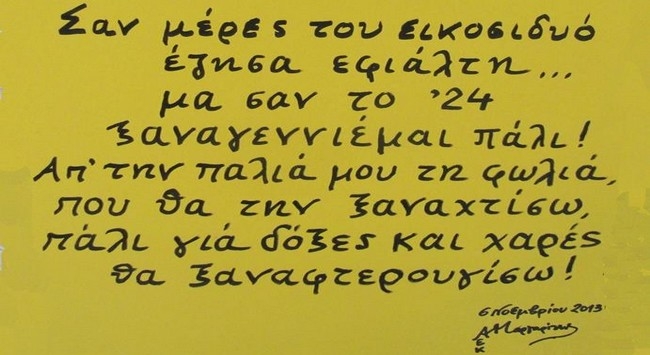 Σαν μέρες του εικοσιδυό
έζησα εφιάλτη...
μα σαν το '24
ξαναγεννιέμαι πάλι!
Απ' την παλιά μου τη φωλιά,
που θα την ξαναχτίσω,
πάλι γιά δόξες και χαρές
θα ξαναφτερουγίσω!
6 Νοεμβρίου 2013
ΑΕΚ